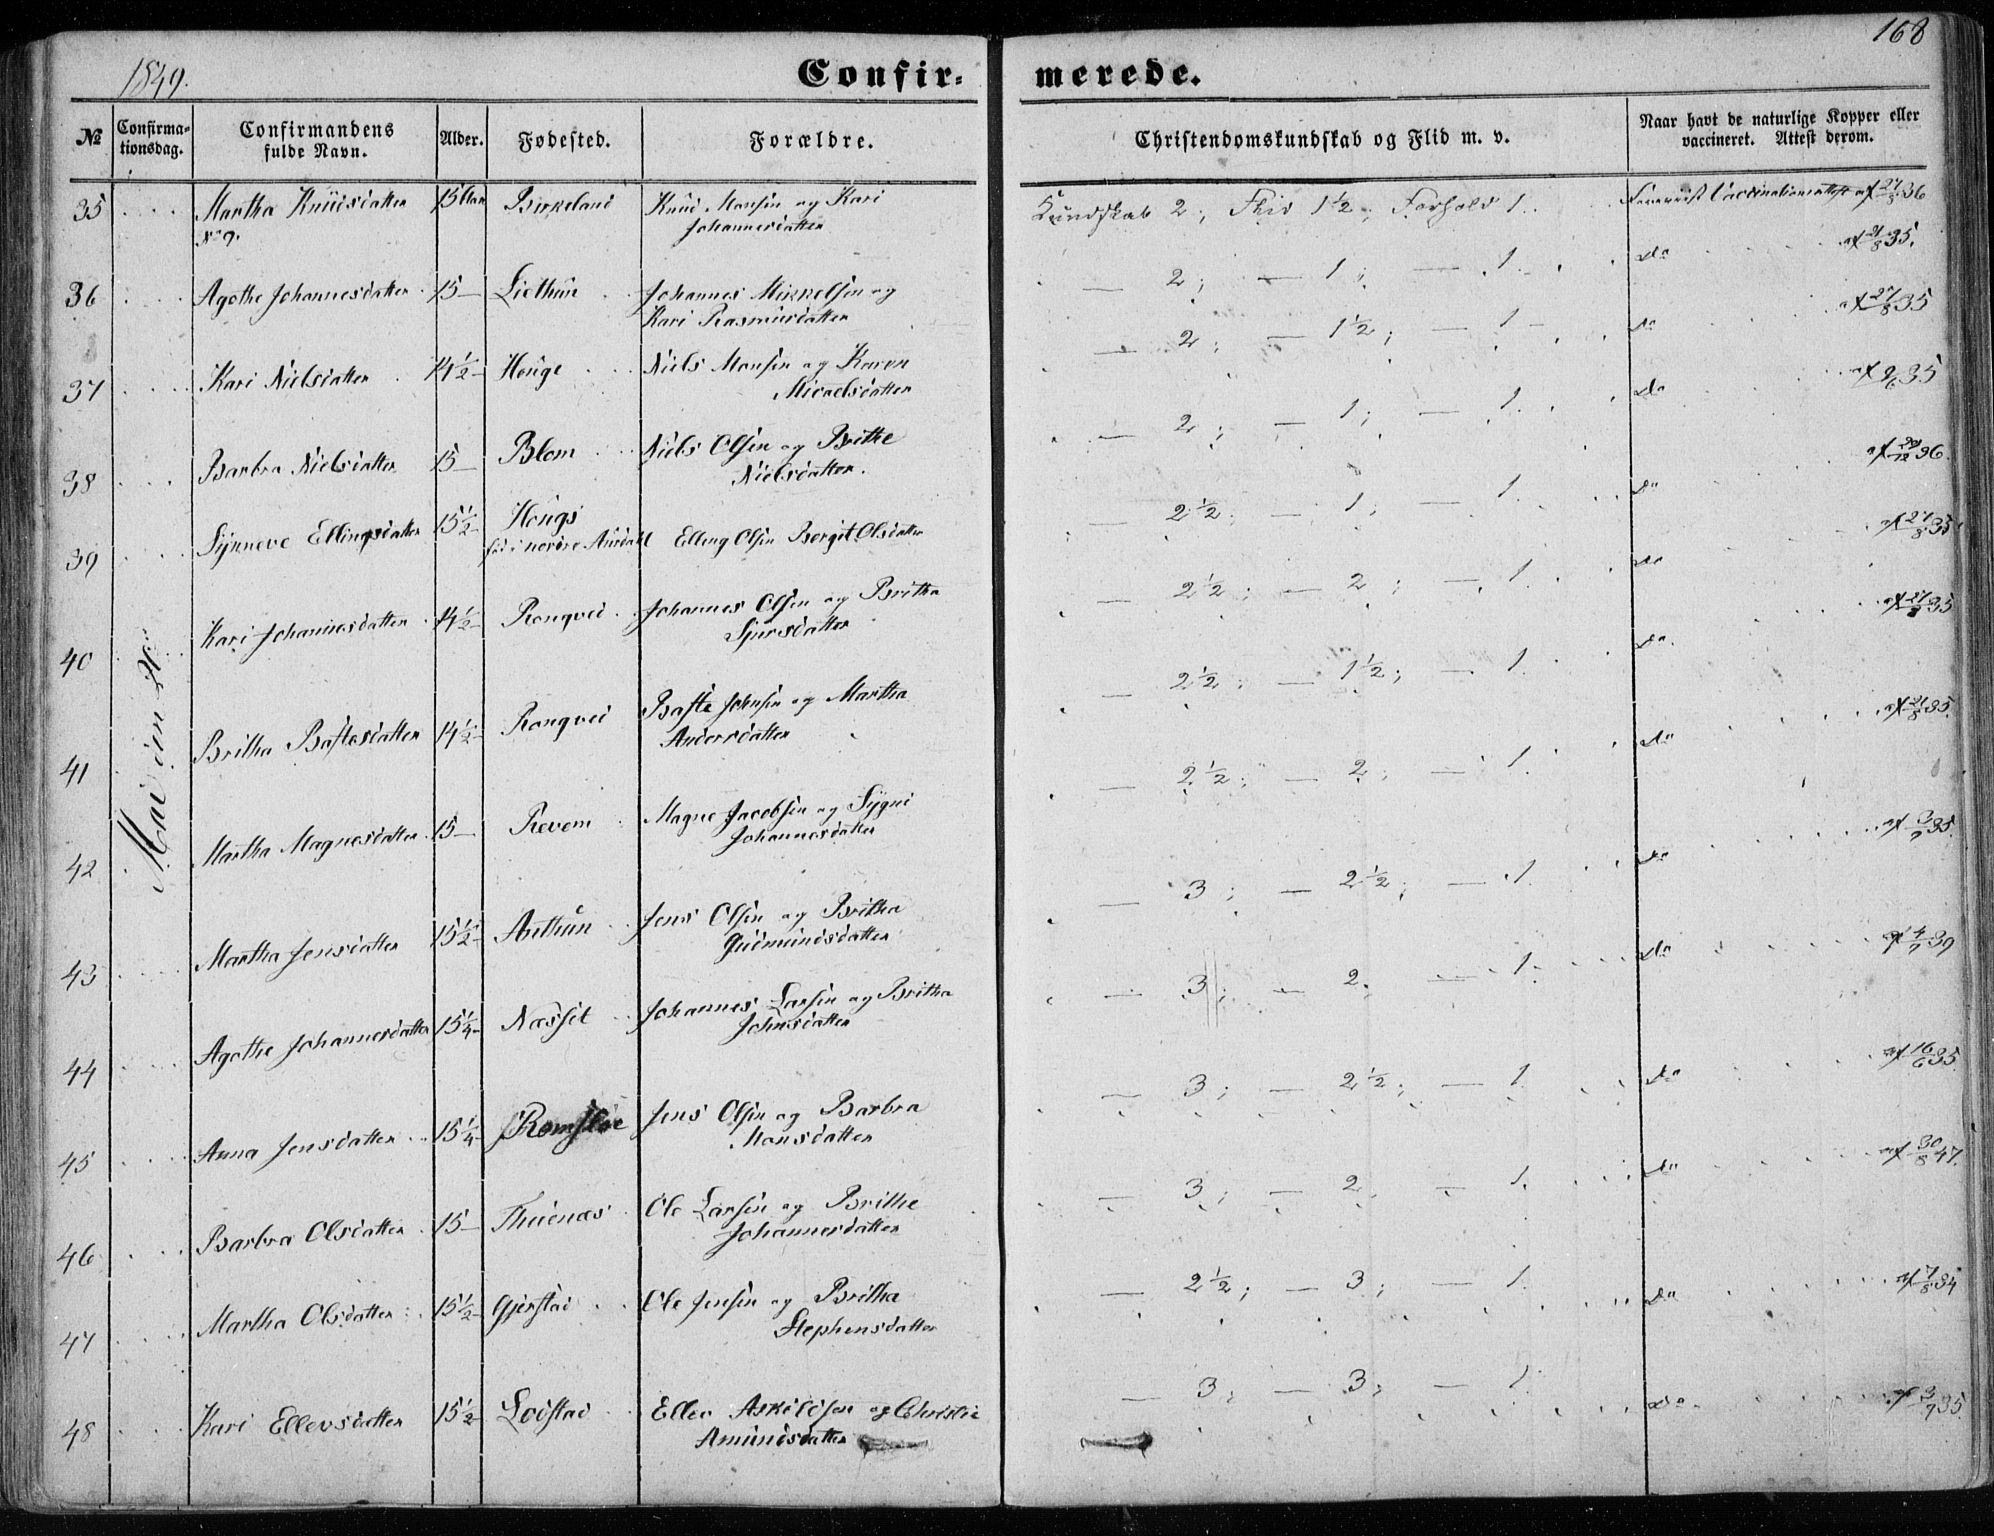 168
1849.
Confir=
merede.
№
Confirma=
tionsdag.
Confirmandens
fulde Navn.
Alder.
Fødested.
Forældre.
Christendomskundskab og Flid m. v.
Naar havt de naturlige Kopper eller
vaccineret. Attest derom.
Mai den
35 Martha Knudsdatter 15 Aar Birkeland Knud Monsen og Kari Kundskab 2; Flid 1½; Forhold 1. Vaccinationsattest af 27/8 36
No 9. Johannesdatter
36 Agothe Johannesdatter 15 Liethun Johannes Mikkelsen og — 2; — 1; — 1. do af 21/8 35.
Kari Rasmusdatter
37 Kari Nielsdatter 14½ Houge Niels Monsen og Karen — 2; — 1½; — 1 do af 27/8 35
Micaelsdatter
38 Barbra Nielsdatter 15 Blom Niels Olsen og Brithe — 2; — 1; — 1. do af 9/6 35
Nielsdatter.
39 Synneve Ellingsdatter 15½ Hougs — 2½; — 1; — 1. do af 36.
fød i nordre Aurdal Elling Olsen Bergit Olsdatter
40 Kari Johannesdatter 14½ Rongved Johannes Olsen og Britha — 2½; — 2; — 1. do af 27/8 35
Sjursdatter
41 Britha Baftesdatter 14½ Rongved Bafte Johnsen og Martha — 2½; — 1½; — 1. do. af 27/8 35
Andersdatter
42 Martha Magnesdatter 15 Revem Magne Jacobsen og Sygni — 2½; — 2; — 1. do af 21/8 35.
Johannesdatter
43 Martha Jensdatter 15½ Authun Jens Olsen og Britha — 3; — 2½; — 1. do af 3/7 35.
Gudmundsdatter
44 Agothe Johannesdatter 15¼ Næsset Johannes Larsen og Britha — 3; — 2. — 1. do af 4/7 39
Johnsdatter
45 Anna Jensdatter 15¼ Romsloe Jens Olsen og Barbra — 3; — 2½; — 1. do af 16/6 35.
Monsdatter
46 Barbra Olsdatter 15 Thuenæs Ole Larsen og Brithe — 3; — 2. — 1. do af 30/8 47.
Johannesdatter
47 Martha Olsdatter 15½ Gjerstad Ole Jensen og Britha — 2½; — 3; — 1. do af 7/8 34
Stephensdatter
48 Kari Ellevsdatter 15½ Lodstad Ellev Askildsen og Christie — 3; — 3; — 1. do. af 3/7 35.
Amundsdatter